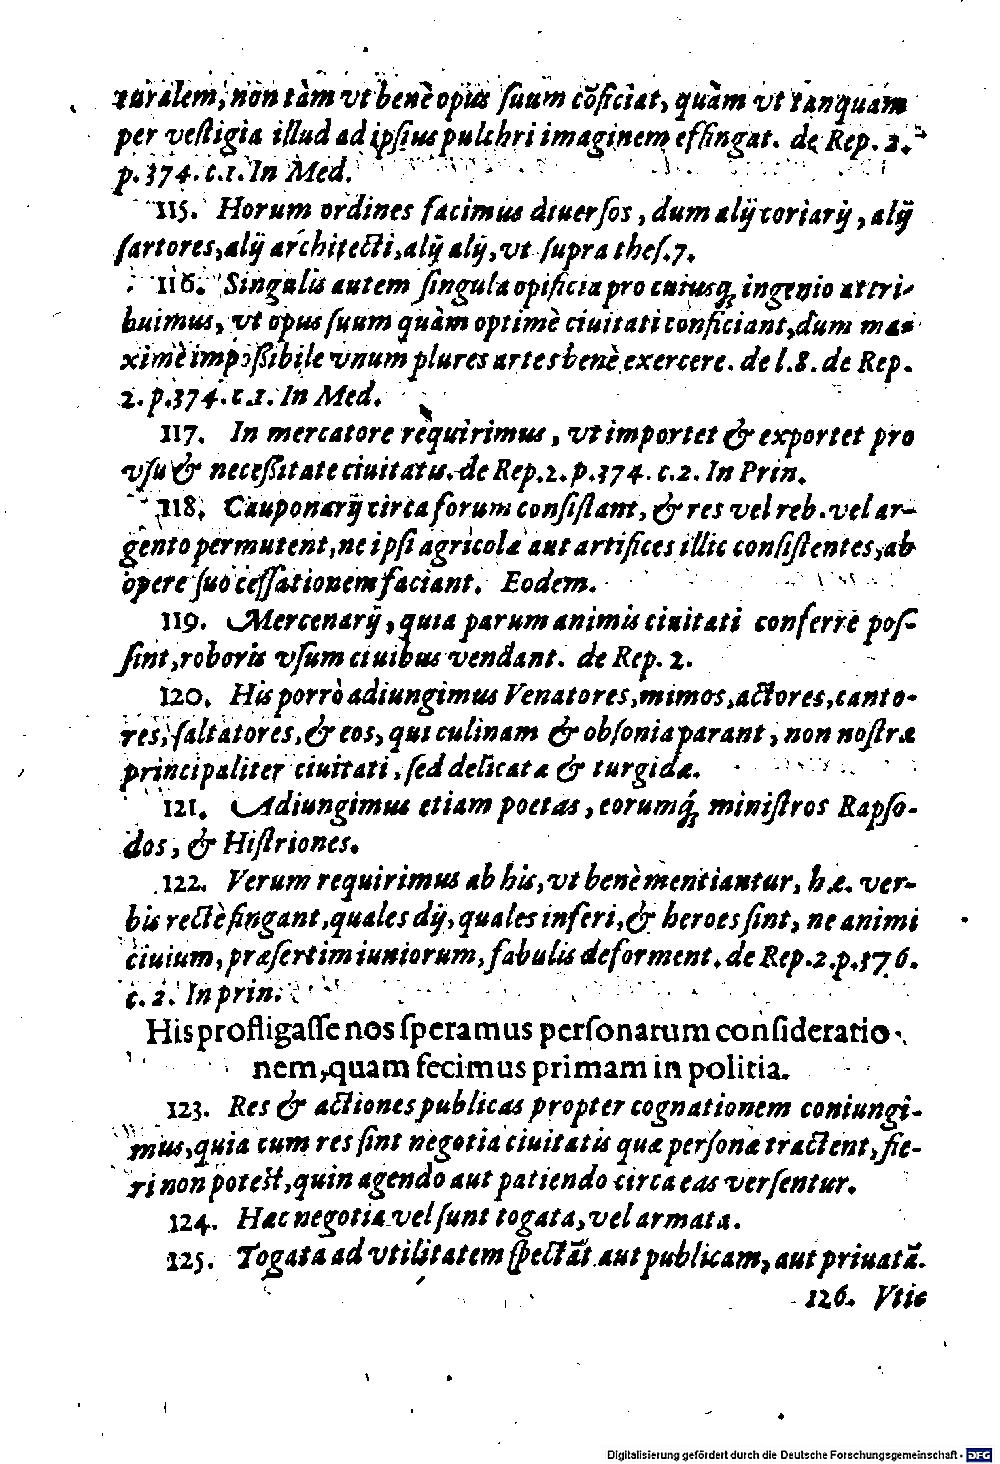 turalem, non tàm vt benè opus ſuum cōficiat, quàm vt tanquam
per veſtigia illud ad ipſius pulchri imaginem effingat. de Rep. 2.
p. 374. c.1. In Med.
115. Horum ordines facimus diuerſos, dum alij coriarij, alij
ſartores, alij architecti, alij alij, vt ſupra theſ. 7.
116. Singulis autem ſingula opificia pro cuiusq; ingenio attri-
buimus, vt opus ſuum quàm optimè ciuitati conficiant, dum ma-
ximè impoſſibile vnum plures artes benè exercere. de l. 8. de Rep.
2. p. 374. c.1. In Med.
117. In mercatore requirimus, vt importet & exportet pro
vſu & neceſſitate ciuitatis. de Rep. 2. p. 374. c.2. In Prin.
118. Cauponarij circa forum conſiſtant, & res vel reb. vel ar-
gento permutent, ne ipſi agricolæ aut artifices illic conſiſtentes, ab
opere ſuo ceſſationem faciant. Eodem.
119. Mercenarij, quia parum animis ciuitati conferre poſ-
ſint, roboris vſum ciuibus vendant. de Rep. 2.
120. His porrò adiungimus Venatores, mimos, actores, canto-
res, ſaltatores, & eos, qui culinam & obſonia parant, non noſtræ
principaliter ciuitati, ſed delicatæ & turgidæ.
121. Adiungimus etiam poetas, eorumq́; miniſtros Rapſo-
dos, & Hiſtriones.
122. Verum requirimus ab his, vt benè mentiantur, h.e. ver-
bis rectè fingant, quales dij, quales inferi, & heroes ſint, ne animi
ciuium, præſertim iuniorum, fabulis deforment. de Rep. 2. p. 376.
c. 2. In prin.
His profligaſſe nos ſperamus perſonarum conſideratio-
nem, quam fecimus primam in politia.
123. Res & actiones publicas propter cognationem coniungi-
mus, quia cum res ſint negotia ciuitatis quæ perſonæ tractent, fie-
ri non poteſt, quin agendo aut patiendo circa eas verſentur.
124. Hæc negotia vel ſunt togata, vel armata.
125. Togata ad vtilitatem ſpectāt aut publicam, aut priuatā.
126. Vtic
Digitalisierung gefördert durch die Deutsche Forschungsgemeinschaft - DFG